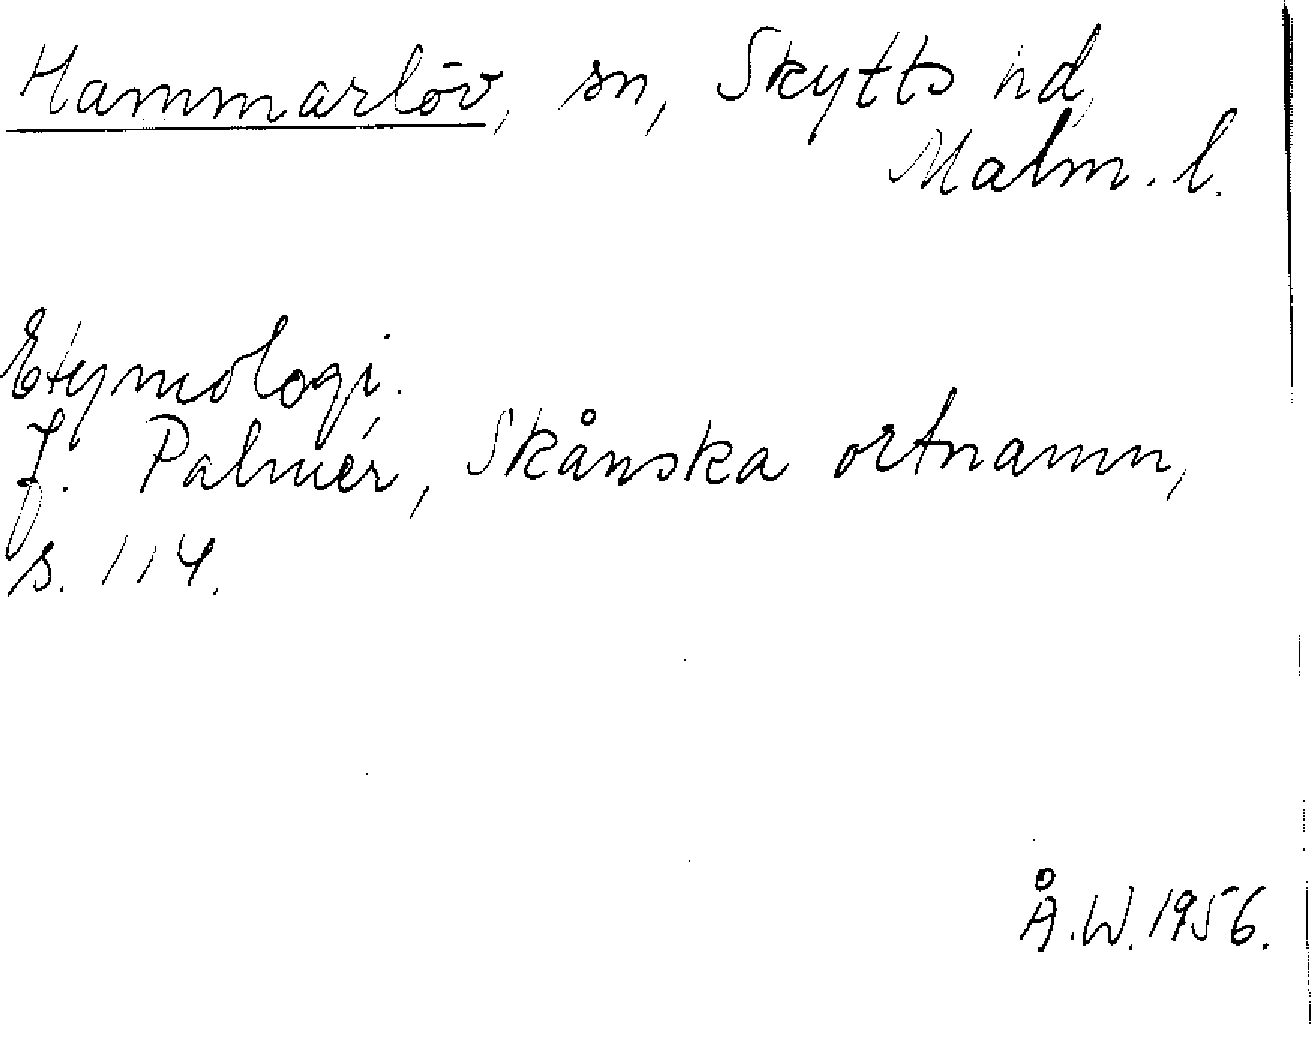 Hammarlöv, sn, Skytts hd,
Malm. l.
Etymologi.
J. Palmér, Skånska ortnamn,
s. 114.
Å.W. 1956.